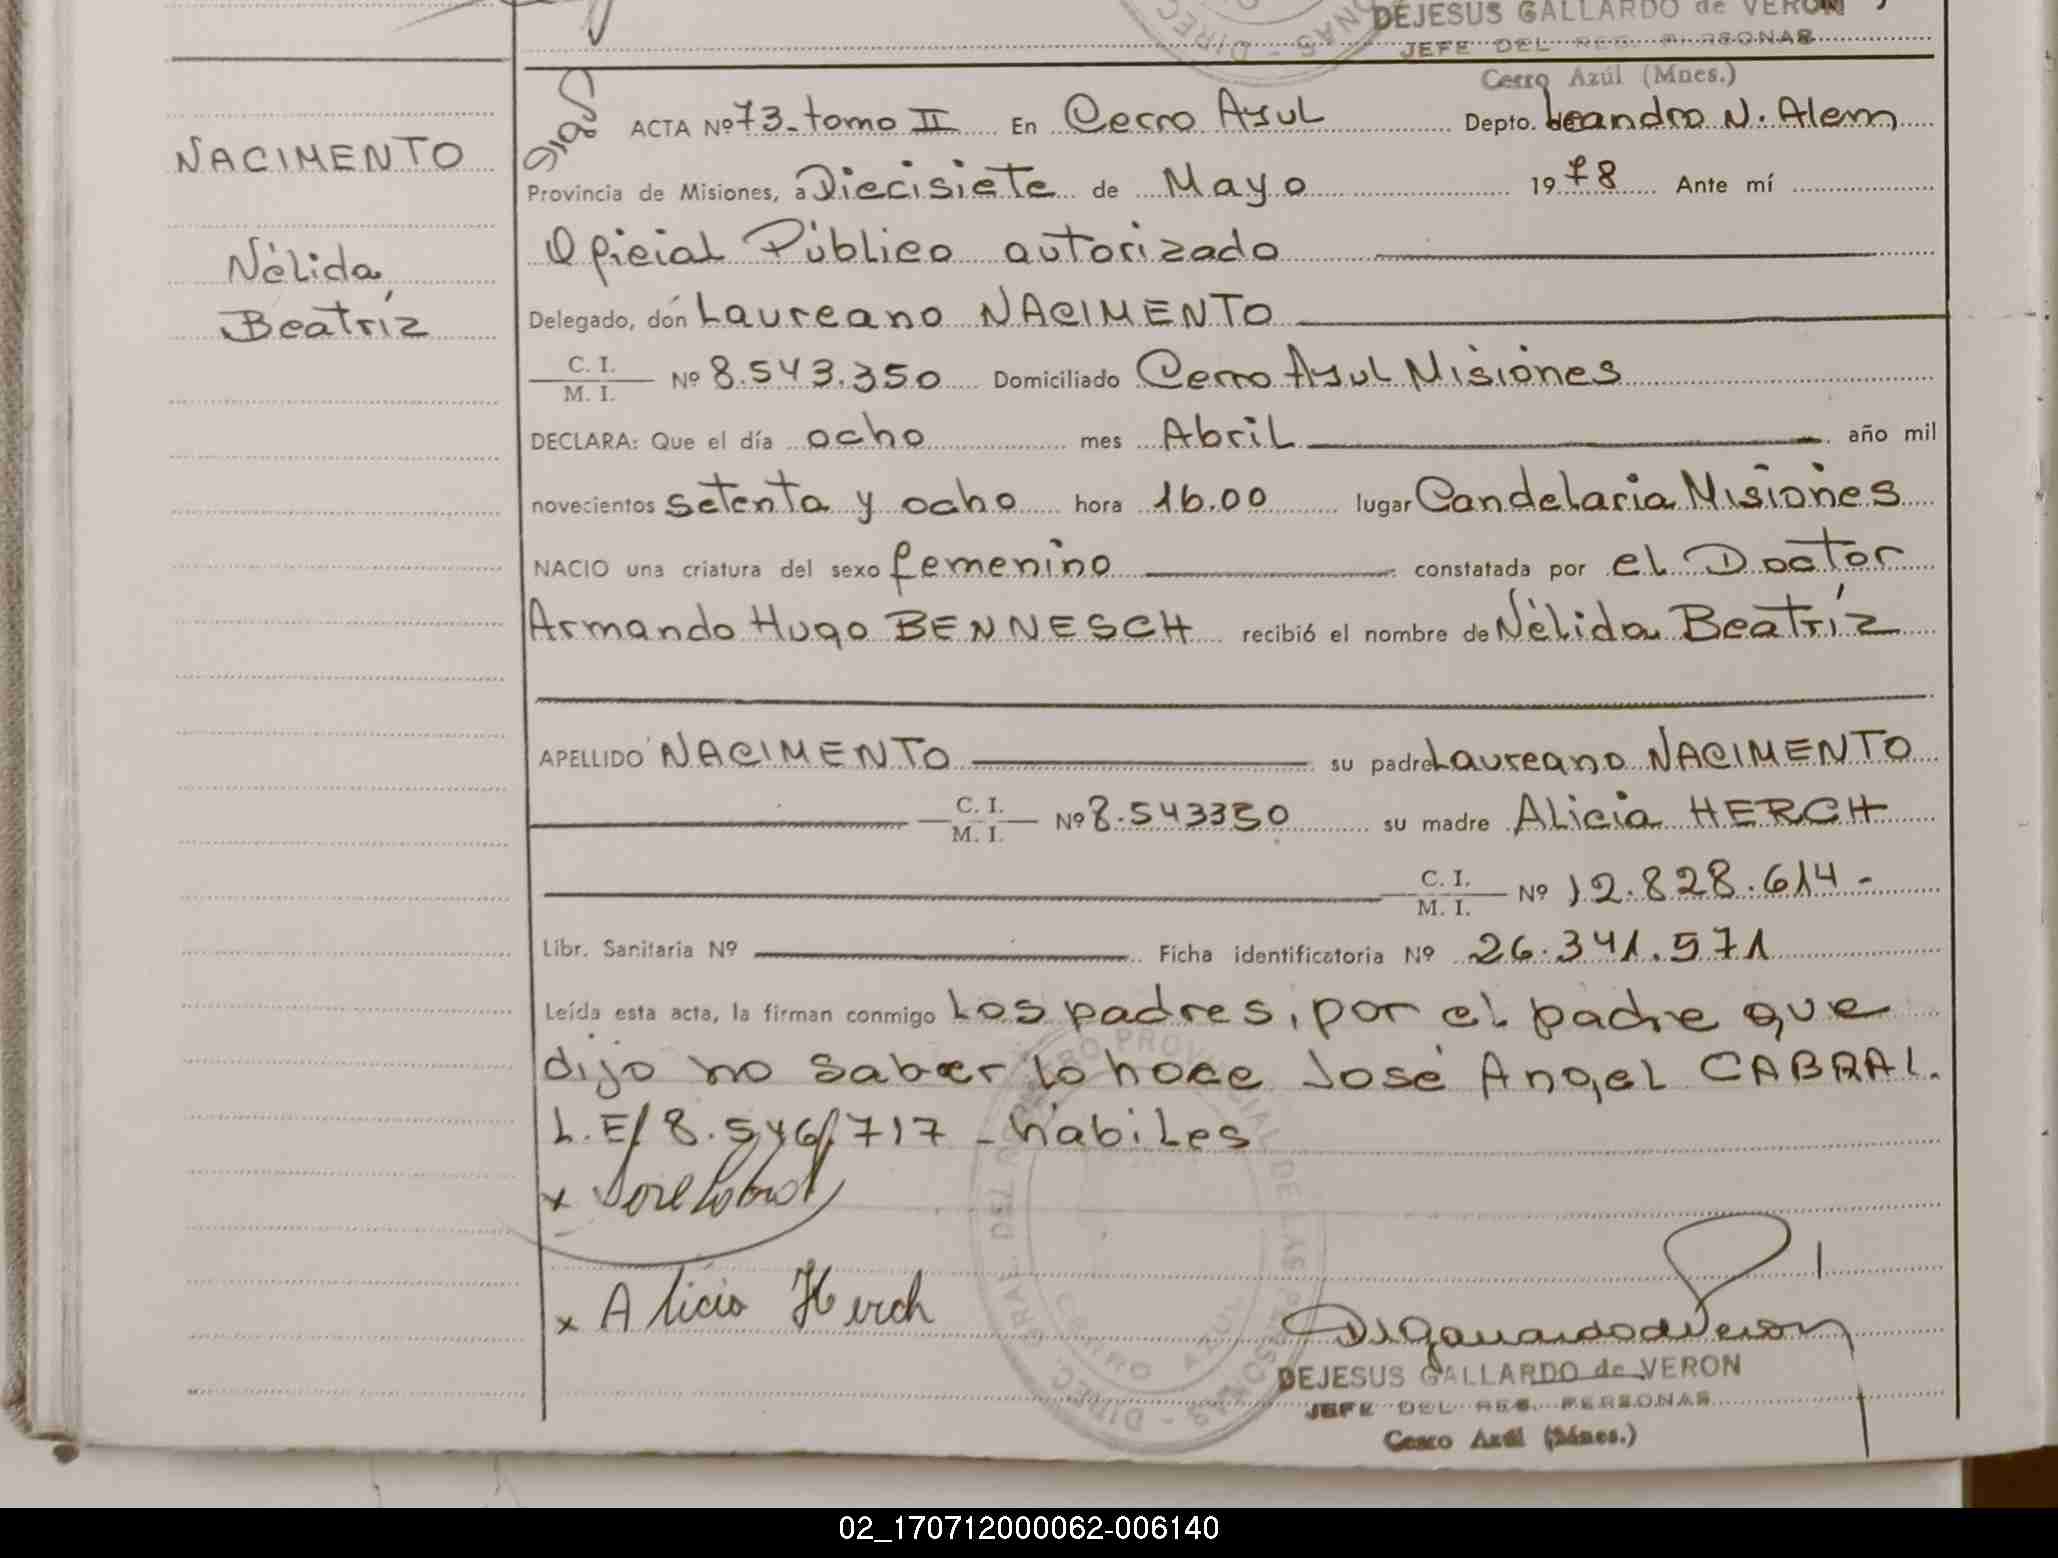 DEJESUS GALLARDO de VERON
JEFE DEL REG. PERSONAS
Cerro Azúl (Mnes.)
NACIMENTO
Nélida
Beatríz
ACTA Nº 73-tomo II En Cerro Azul Depto. de Leandro N. Alem
Provincia de Misiones, a Diecisiete de Mayo 1978 Ante mí
Oficial Público autorizado
Delegado, don Laureano NACIMENTO
C. I.
M. I.
Nº 8.543.350 Domiciliado Cerro Azul Misiones
DECLARA: Que el día ocho mes Abril año mil
novecientos setenta y ocho hora 16.00 lugar Candelaria Misiones
NACIO una criatura del sexo femenino constatada por el Doctor
Armando Hugo BENNESCH recibió el nombre de Nélida Beatríz
APELLIDO NACIMENTO su padre Laureano NACIMENTO
C. I.
M. I.
Nº 8.543350 su madre Alicia HERCH
C. I.
M. I.
Nº 12.828.614-
Libr. Sanitaria Nº Ficha identificatoria Nº 26.341.571
Leída esta acta, la firman conmigo Los padres, por el padre que
dijo no saber lo hace José Angel CABRAL.
L.E/ 8.546/717 - habiles
x José Cabral
x Alicia Herch
DIREC. GRAL. DEL REGISTRO PROVINCIAL DE LAS PERSONAS
CERRO AZUL
DEJESUS GALLARDO de VERON
JEFE DEL REG. PERSONAS
Cerro Azúl (Mnes.)
02_170712000062-006140